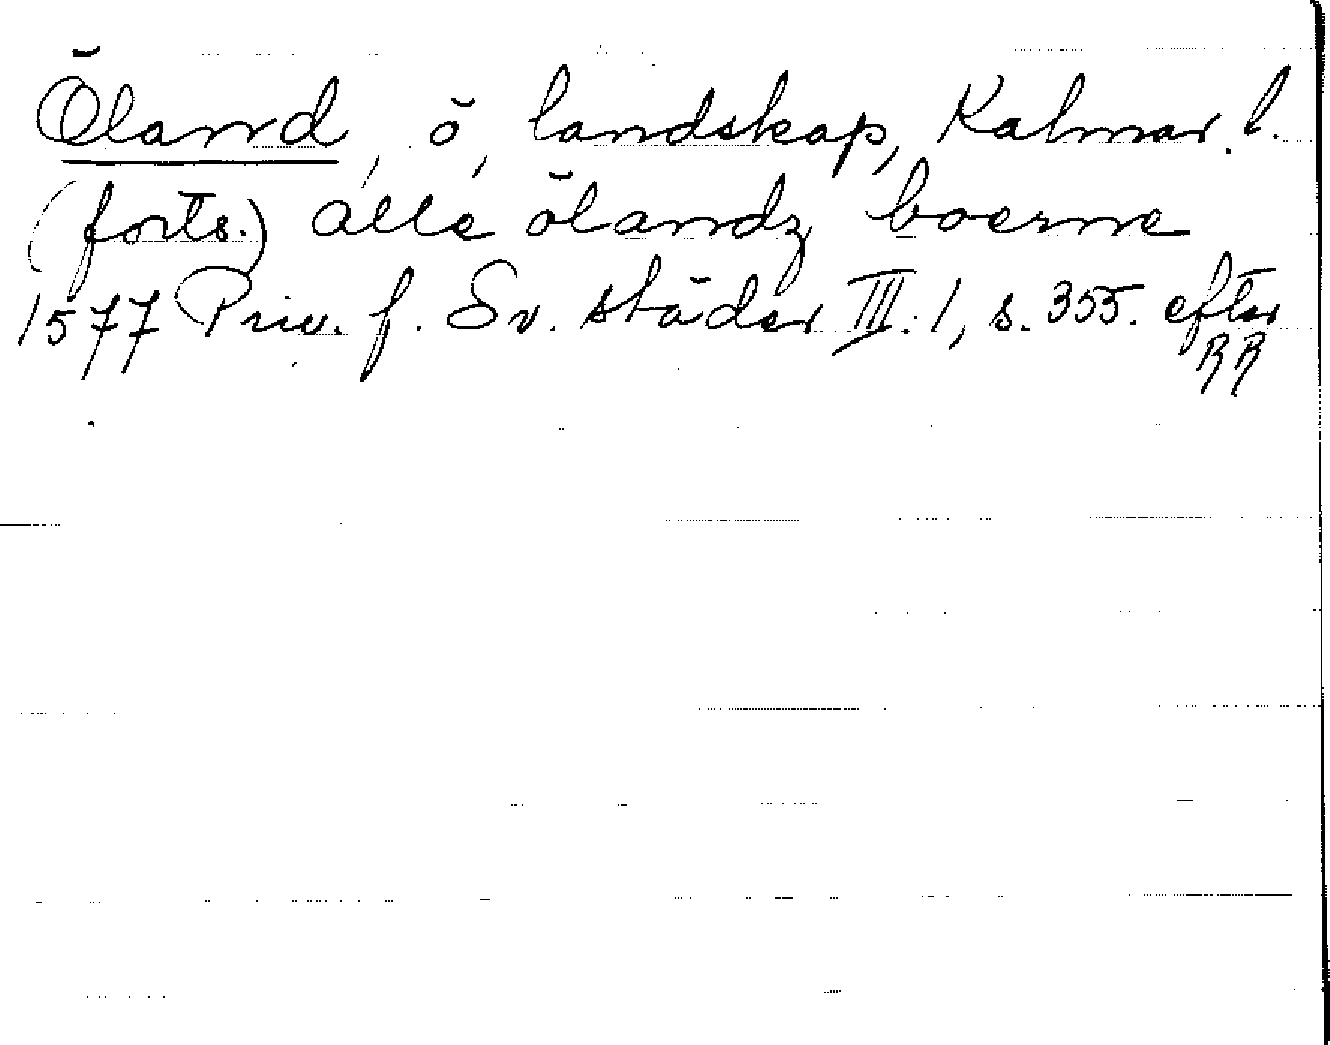 Öland, ö, landskap, Kalmar l.
(forts.) alle ölandz boerne
1577 Priv. f. Sv. städer III:1, s. 355. efter
RR